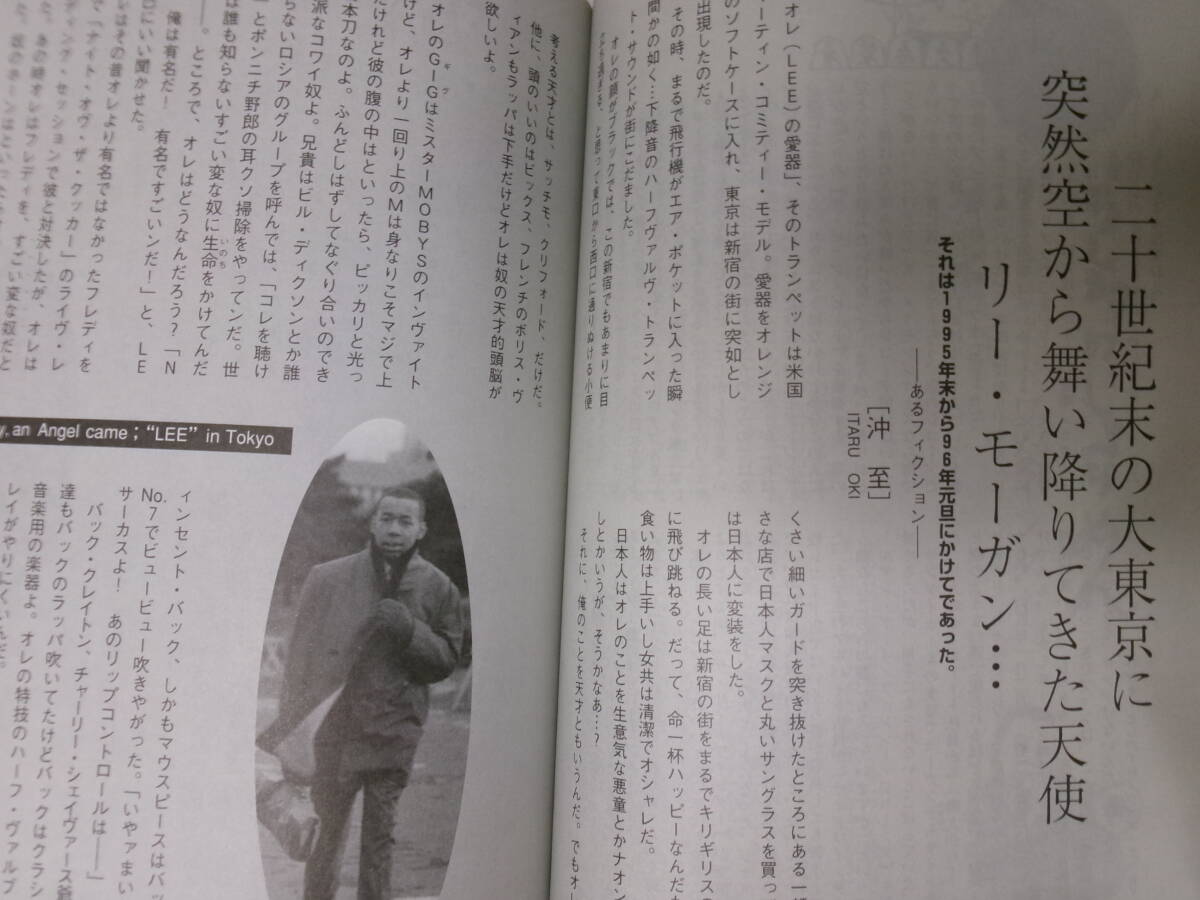 二十世紀末の大東京に
突然空から舞い降りてきた天使
リー・モーガン…
それは1995年末から96年元旦にかけてであった。
――あるフィクション――
[沖 至]
ITARU OKI
オレ（LEE）の愛器」、そのトランペットは米国
ーティン・コミティー・モデル。愛器をオレンジ
のソフトケースに入れ、東京は新宿の街に突如とし
出現したのだ。
その時、まるで飛行機がエア・ポケットに入った瞬
間かの如く…下降音のハーフヴァルヴ・トランペッ
ト・サウンドが街にこだました。
オレの顔がブラックでは、この新宿でもあまりに目
と思って東口から西口に通りぬける小便
くさい細いガードを突き抜けたところにある一
さな店で日本人マスクと丸いサングラスを買っ
は日本人に変装をした。
オレの長い足は新宿の街をまるでキリギリスの
に飛び跳ねる。だって、命一杯ハッピーなんだ
食い物は上手いし女共は清潔でオシャレだ。
日本人はオレのことを生意気な悪童とかナオン
しとかいうが、そうかなあ…？
それに、俺のことを天才ともいうんだ。でもオ
考える天才とは、サッチモ、クリフォード、だけだ。
他に、頭のいいのはビックス、フレンチのボリス・ヴ
ィアンもラッパは下手だけどオレは奴の天才的頭脳が
欲しいよ。
オレのGIGはミスターMOBYSのインヴァイト
けど、オレより一回り上のMは身なりこそマジで上
だけれど彼の腹の中はといったら、ピッカリと光っ
本刀なのよ。ふんどしはずしてなぐり合いのでき
派なコワイ奴よ。兄貴はビル・ディクソンとか誰
らないロシアのグループを呼んでは、「コレを聴け
」とポンニチ野郎の耳クソ掃除をやってンだ。世
は誰も知らないすごい変な奴に生命をかけてんだ
――。ところで、オレはどうなんだろう？「N
俺は有名だ！　有名ですごいンだ！」と、LE
口にいい聞かせた。
はその昔オレより有名ではなかったフレディを
で「ナイト・オヴ・ザ・クッカー」のライヴ・レ
・セッションで彼と対決したが、オレは
あの時オレはフレディを、すごい変な奴だと
y, an Angel came ; “LEE” in Tokyo
ィンセント・バック、しかもマウスピースはバッ
No.7でビュービュー吹きやがった。「いやァまい
サーカスよ！　あのリップコントロールは――」
バック・クレイトン、チャーリー・シェイヴァース爺
達もバックのラッパ吹いてたけどバックはクラシ
音楽用の楽器よ。オレの特技のハーフ・ヴァルブ
レイがやりにくいんだ。